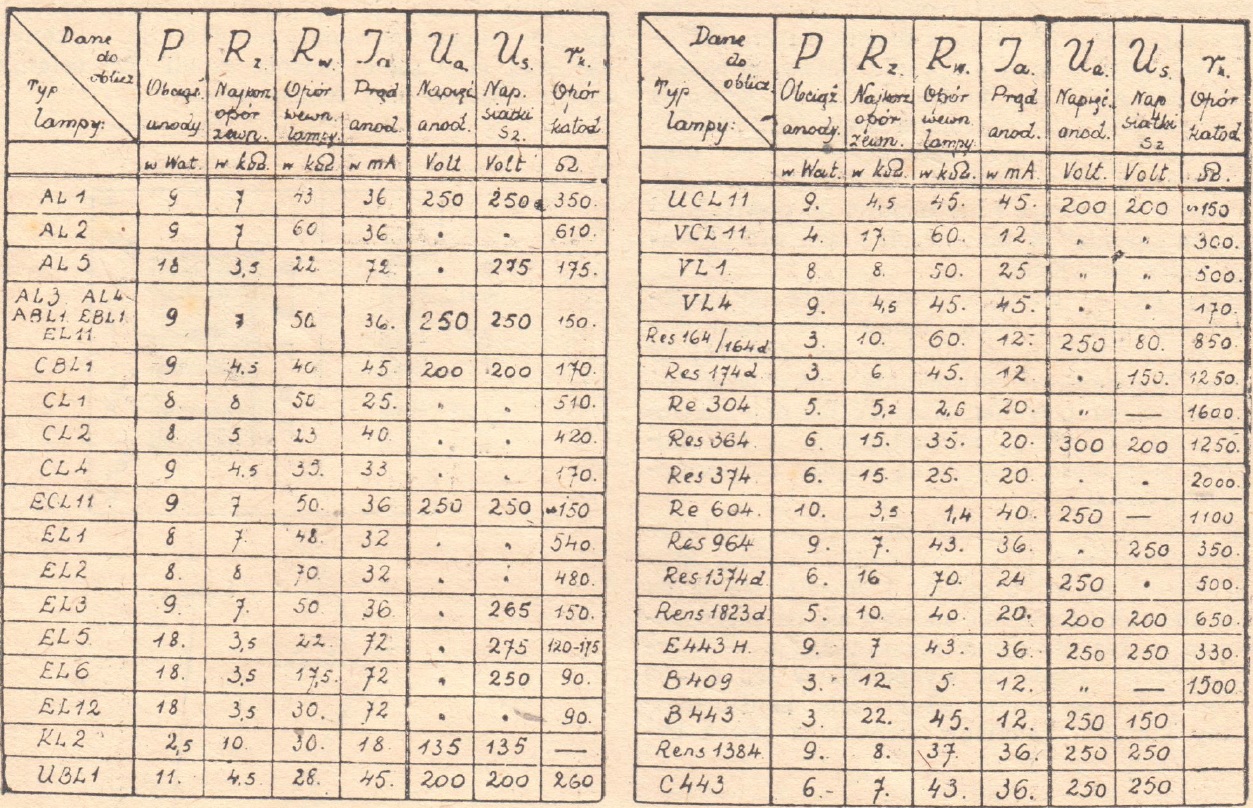 Dane do oblicz. Typ lampy: P Obciąż. anody R z. Najkorz. opór zewn. R w. Opór wewn. lampy. J a Prąd anod. U a Napięć. anod. U s. Nap. siatki S2. r k. Opór katod
w Wat. w kΩ w kΩ w mA Volt Volt Ω.
AL1 9 7 43 36 250 250 350.
AL2 9 7 60 36 " " 610.
AL5 18 3,5 22 72 " 275 175.
AL3 AL4 ABL1 EBL1 EL11 9 7 50 36. 250 250 150.
CBL1 9 4.5 40 45 200 200 170.
CL1 8. 8 50 25. " " 510.
CL2 8. 5 23 40 " " 420.
CL4 9 4.5 35. 33 " " 170.
ECL11 9 7 50. 36 250 250 ~150
EL1 8 7. 48. 32 " " 540.
EL2 8. 8 70. 32 " " 480.
EL3 9. 7. 50 36. " 265 150.
EL5 18. 3,5 22. 72. " 275 120-175
EL6 18. 3,5 17,5. 72 " 250 90.
EL12 18 3,5 30. 72 " " 90.
KL2 2,5 10. 30. 18. 135 135 —
UBL1 11. 4.5 28. 45. 200 200 260
Dane do oblicz. Typ lampy: P Obciąż anody. R z. Najkorz opór zewn. R w. Opór wewn. lampy. J a. Prąd anod. U a. Napięć. anod. U s. Nap siatki S2 r k. Opór katod
w Wat. w kΩ. w kΩ. w mA. Volt. Volt. Ω.
UCL11 9. 4,5 45. 45. 200 200 ~150
VCL11 4. 17. 60. 12. " " 300.
VL1 8. 8. 50. 25 " " 500.
VL4 9. 4,5 45. 45. " " 170.
Res 164/164d 3. 10. 60. 12. 250 80. 850.
Res 174d 3. 6. 45. 12 " 150. 1250.
Re 304 5. 5,2 2,6 20. " — 1600.
Res 364 6. 15. 35. 20. 300 200 1250.
Res 374 6. 15. 25. 20. 2000.
Re 604. 10. 3,5 1,4 40. 250 — 1100
Res 964 9. 7. 43. 36. " 250 350.
Res 1374d 6. 16 70. 24 250 " 500.
Rens 1823d 5. 10. 40. 20. 200 200 650.
E443 H. 9. 7 43. 36. 250 250 330.
B409 3. 12 5. 12. " — 1500.
B443 3. 22. 45. 12. 250 150
Rens 1384. 9. 8. 37. 36. 250 250
C443 6.- 7. 43. 36. 250 250